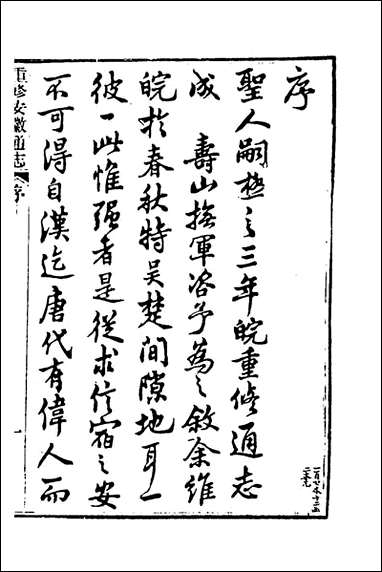 序
聖人嗣極之三年皖重修通志
成　壽山撫軍咨予為之敘余維
皖於春秋特吳楚間隙地耳一
彼一此惟强者是從求信宿之安
不可得自漢迄唐代有偉人而
重修安徽通志　序　一